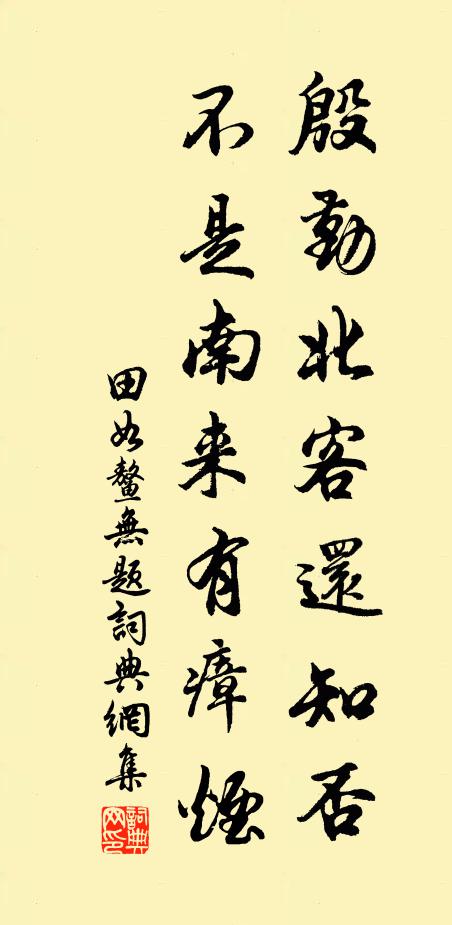 殷勤北客還知否
不是南来有瘴煙
田如鼇無題詞典網集
詞典網印